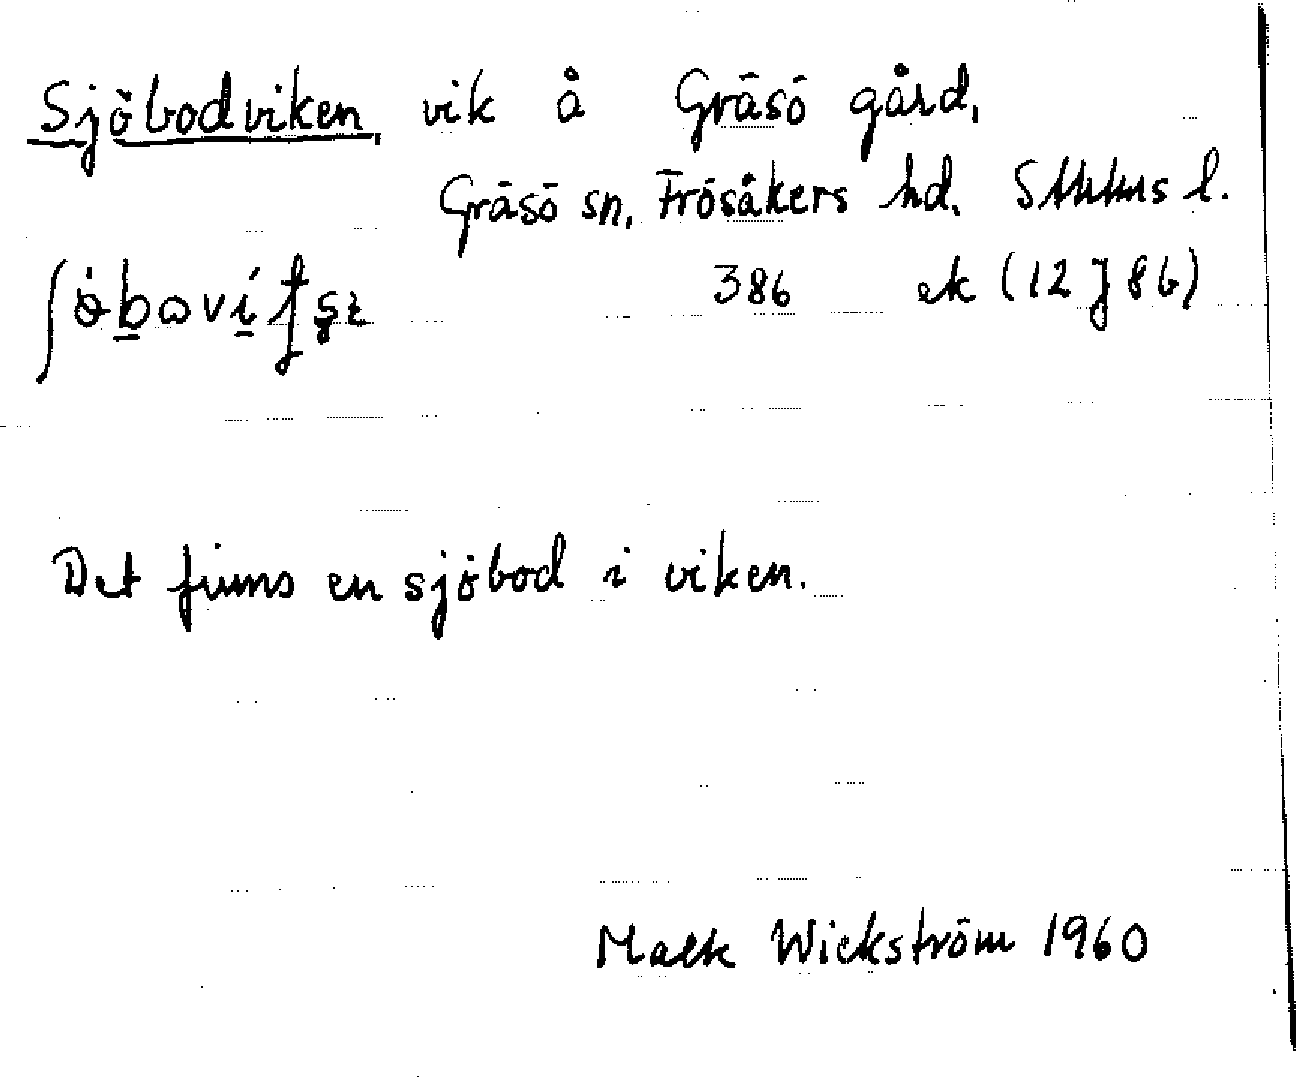 Sjöbodviken, vik å Gräsö gård,
Gräsö sn, Frösåkers hd. Sthlms l.
386 ek (12 J 8b)
Det finns en sjöbod i viken.
Mack Wickström 1960